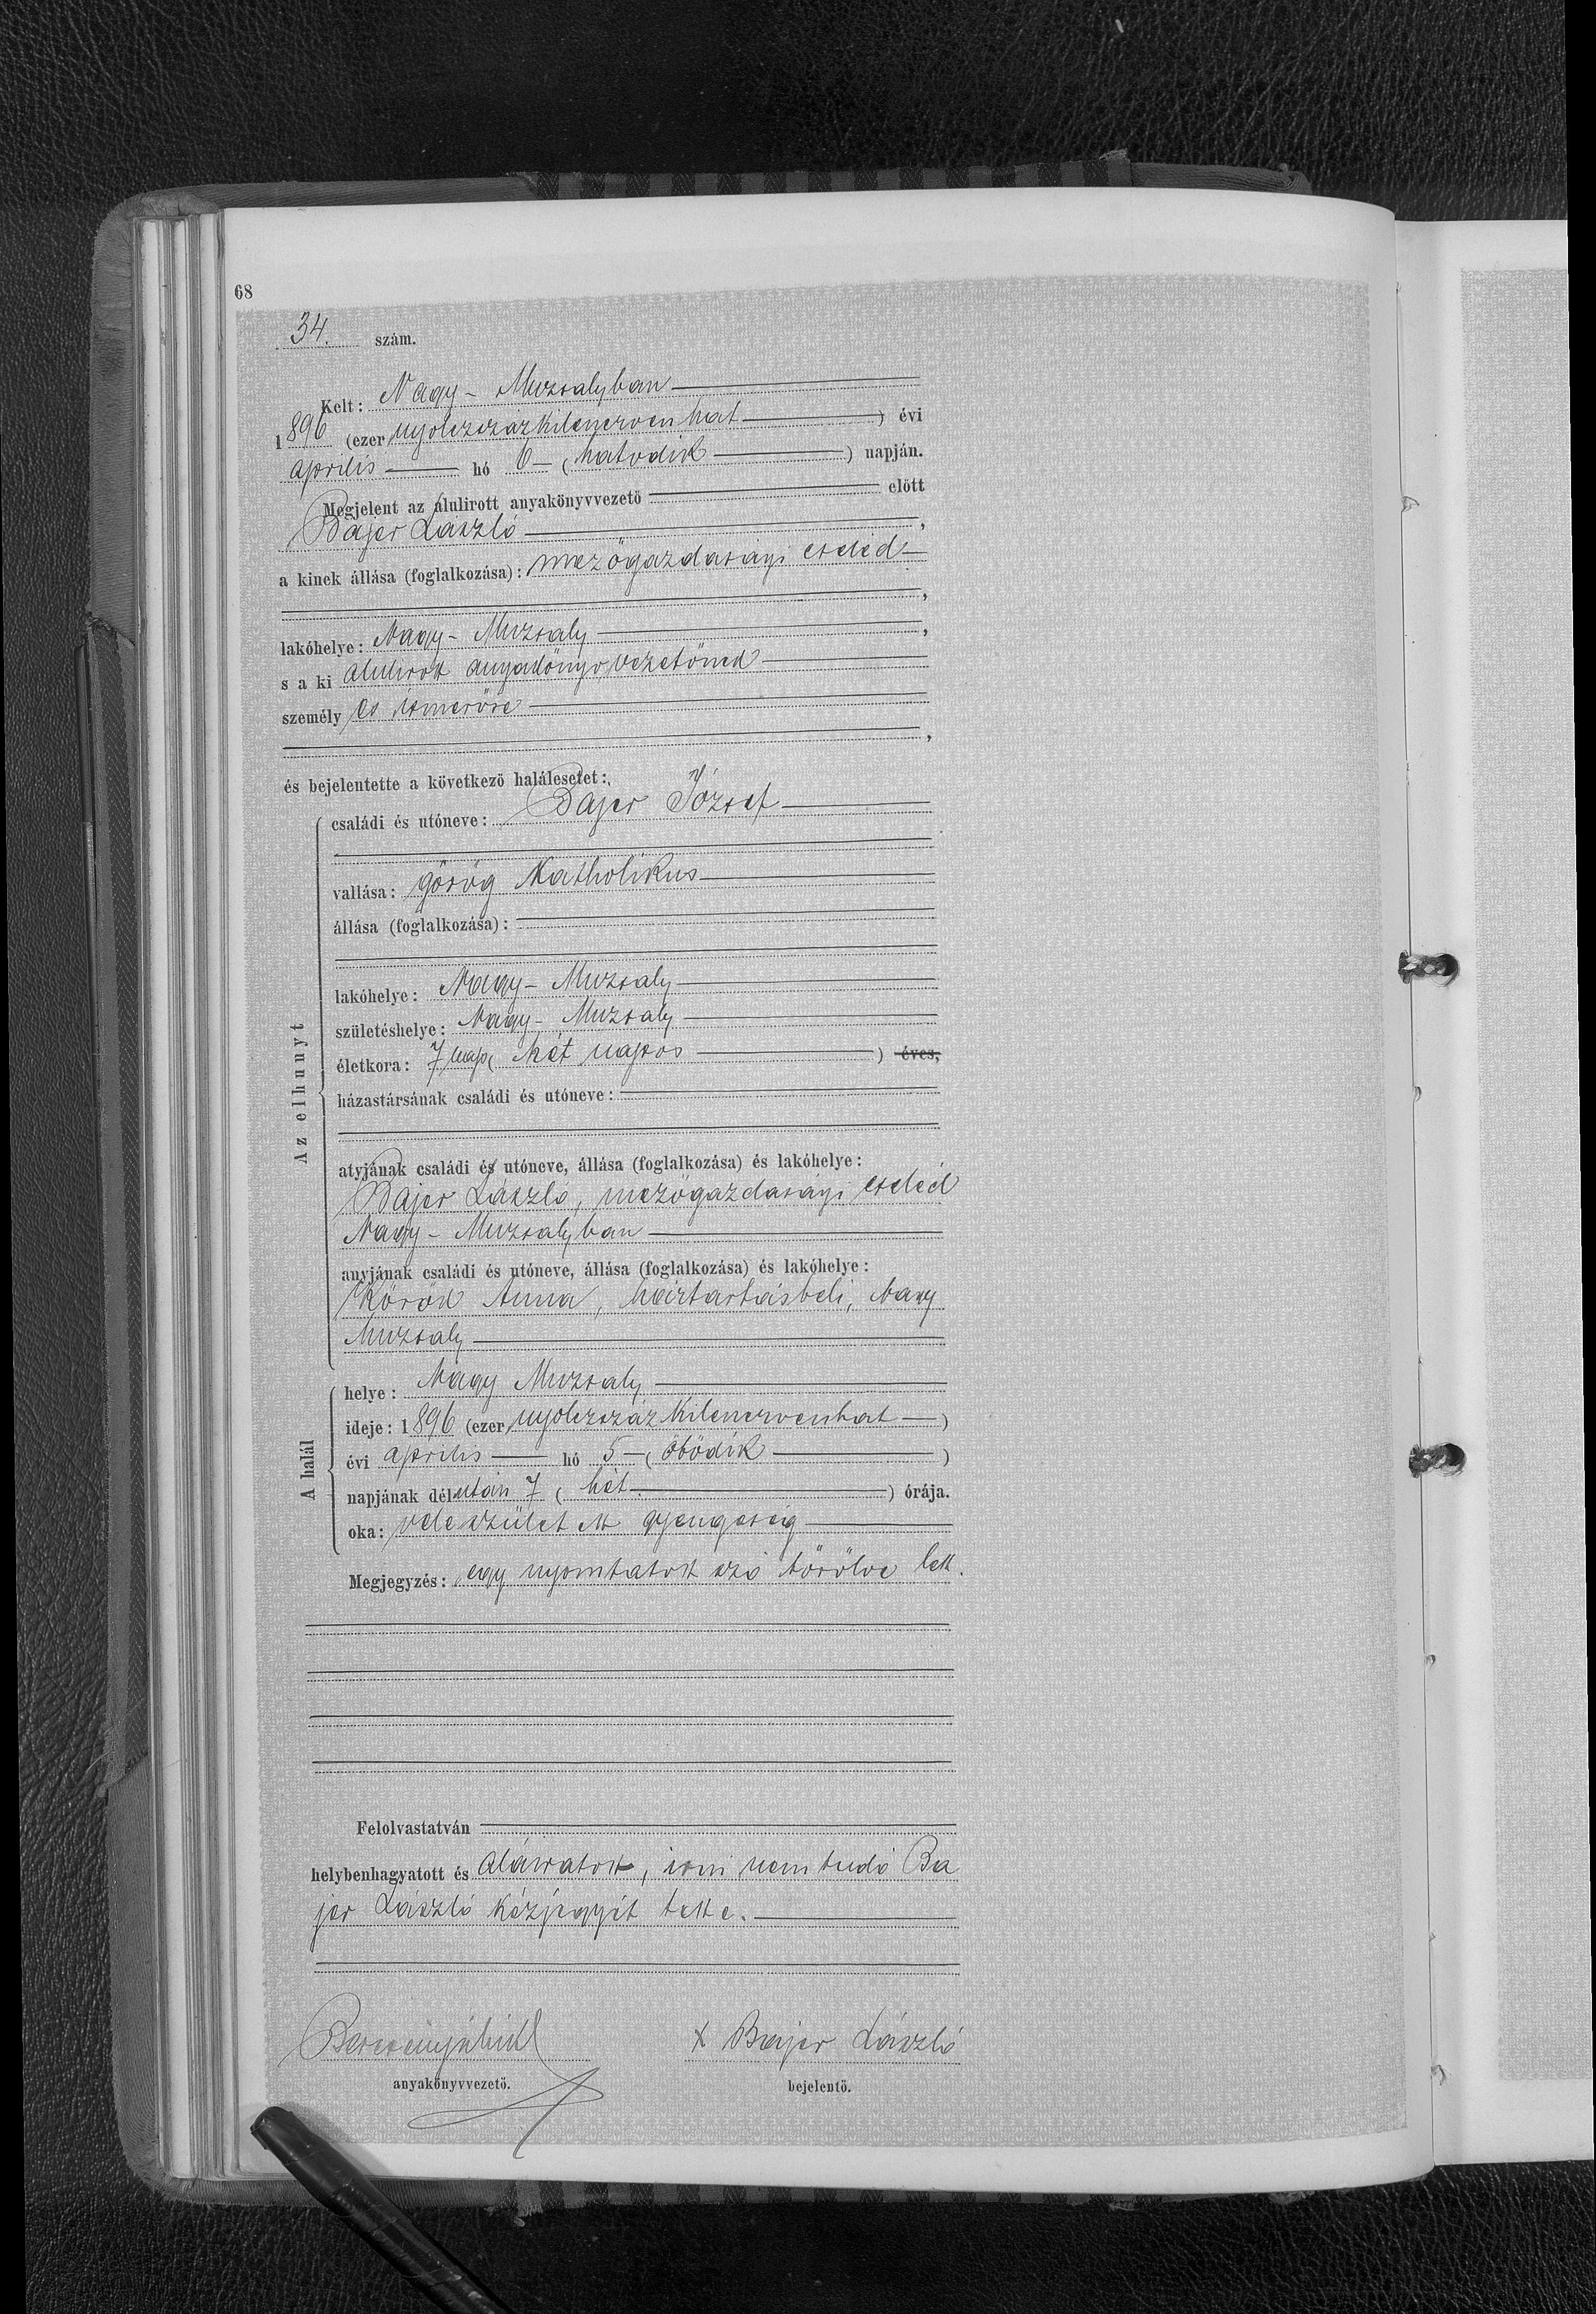 68
34. szám.
Kelt: Nagy-Muzsalyban
1896 (ezer nyolczszázkilenczvenhat) évi
április hó 6 (hatodik) napján.
Megjelent az alulirott anyakönyvvezető előtt
Bajer László,
a kinek állása (foglalkozása): mezőgazdasági cseléd
,
lakóhelye: Nagy-Muzsaly,
s a ki alulirott anyakönyvvezetőnek
személyes ismerőse
,
és bejelentette a következő halálesetet:
Az elhunyt
családi és utóneve: Bajer József
vallása: görög katholikus
állása (foglalkozása):
lakóhelye: Nagy-Muzsaly
születéshelye: Nagy-Muzsaly
életkora: 7 napos (hét napos) éves,
házastársának családi és utóneve:
atyjának családi és utóneve, állása (foglalkozása) és lakóhelye:
Bajer László, mezőgazdasági cseléd
Nagy-Muzsalyban
anyjának családi és utóneve, állása (foglalkozása) és lakóhelye:
Anna, háztartásbeli, Nagy
Muzsaly
A halál
helye: Nagy Muzsaly
ideje: 1896 (ezer nyolczszáz kilenczvenhat)
évi április hó 5 (ötödik)
napjának délután 7 (hét) órája.
oka: veleszületett gyengeség
Megjegyzés: egy nyomtatott szó törölve lett.
Felolvastatván
helybenhagyatott és aláiratott, irni nem tudó Ba
jer László kézjegyét tette.
x Bajer László
anyakönyvvezető. bejelentő.